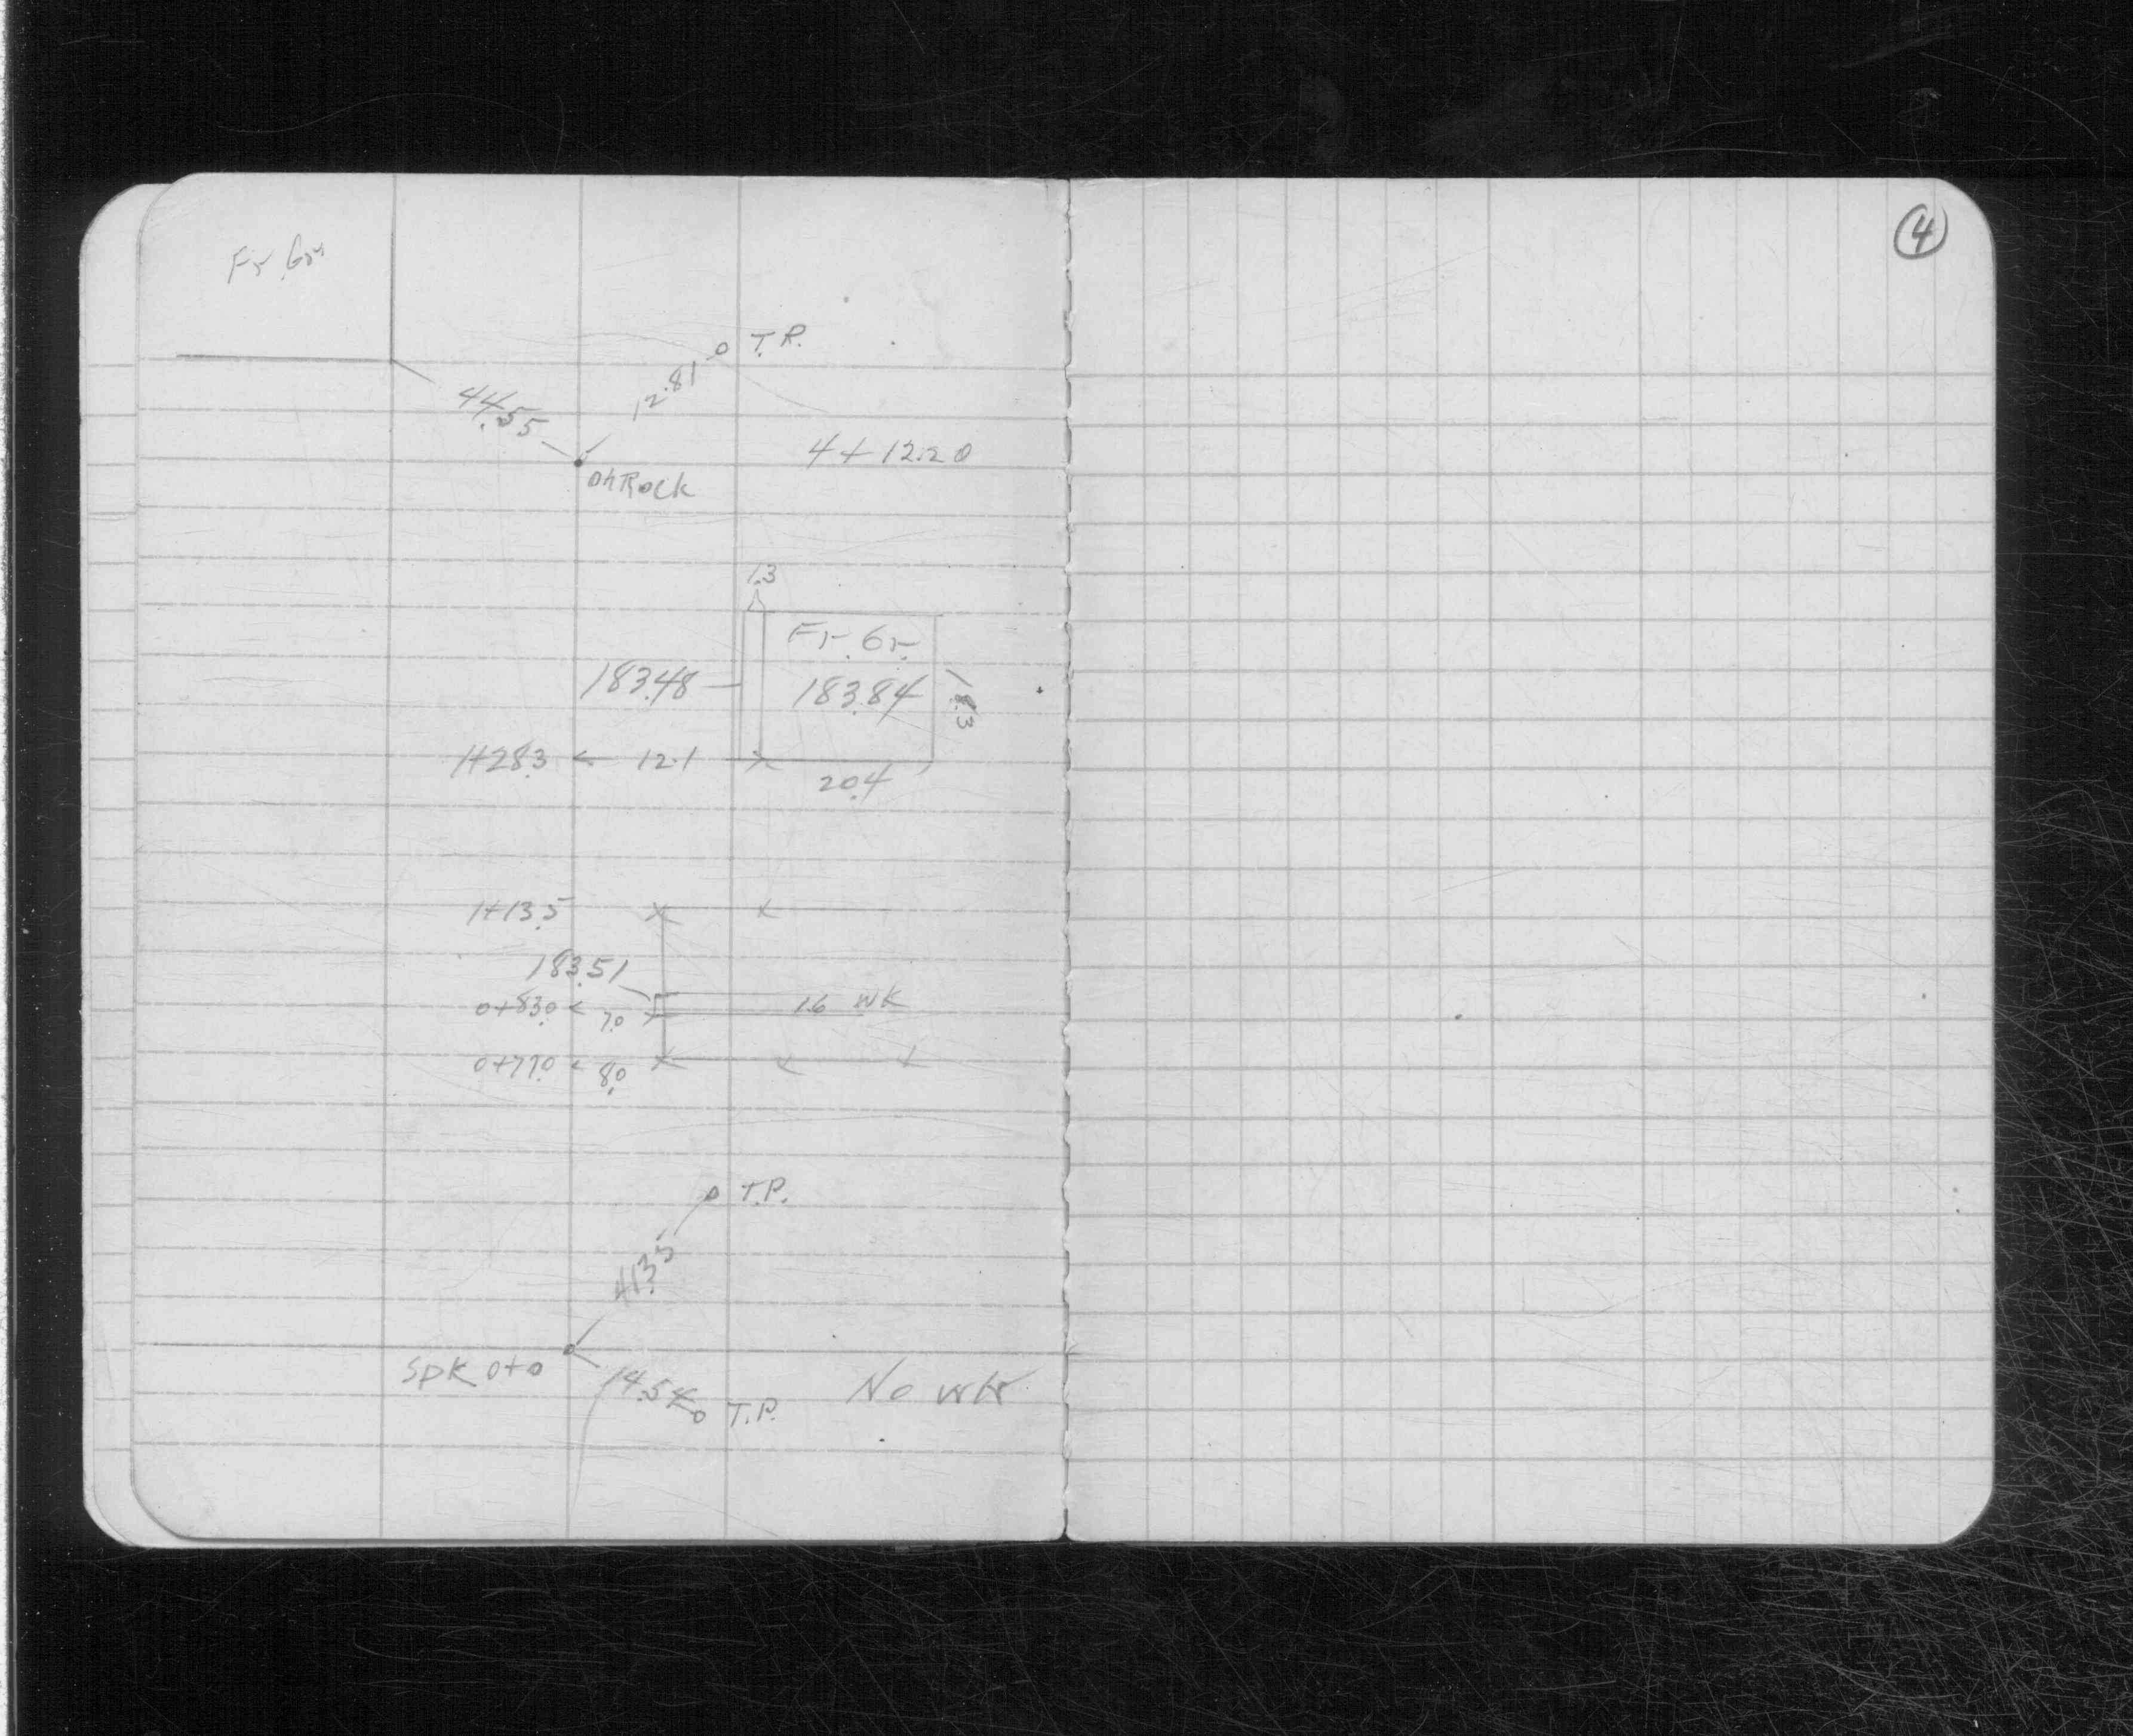 4
Fr. Gr.
T.P.
12.81
44.55
4+12.20
on Rock
1.3
Fr. Gr.
183.48
183.84
18.3
1+28.3
12.1
20.4
1+13.5
183.51
0+83.0
7.0
1.6 WK
0+77.0
8.0
T.P.
41.35
Spk 0+0
14.54
T.P.
No wtr